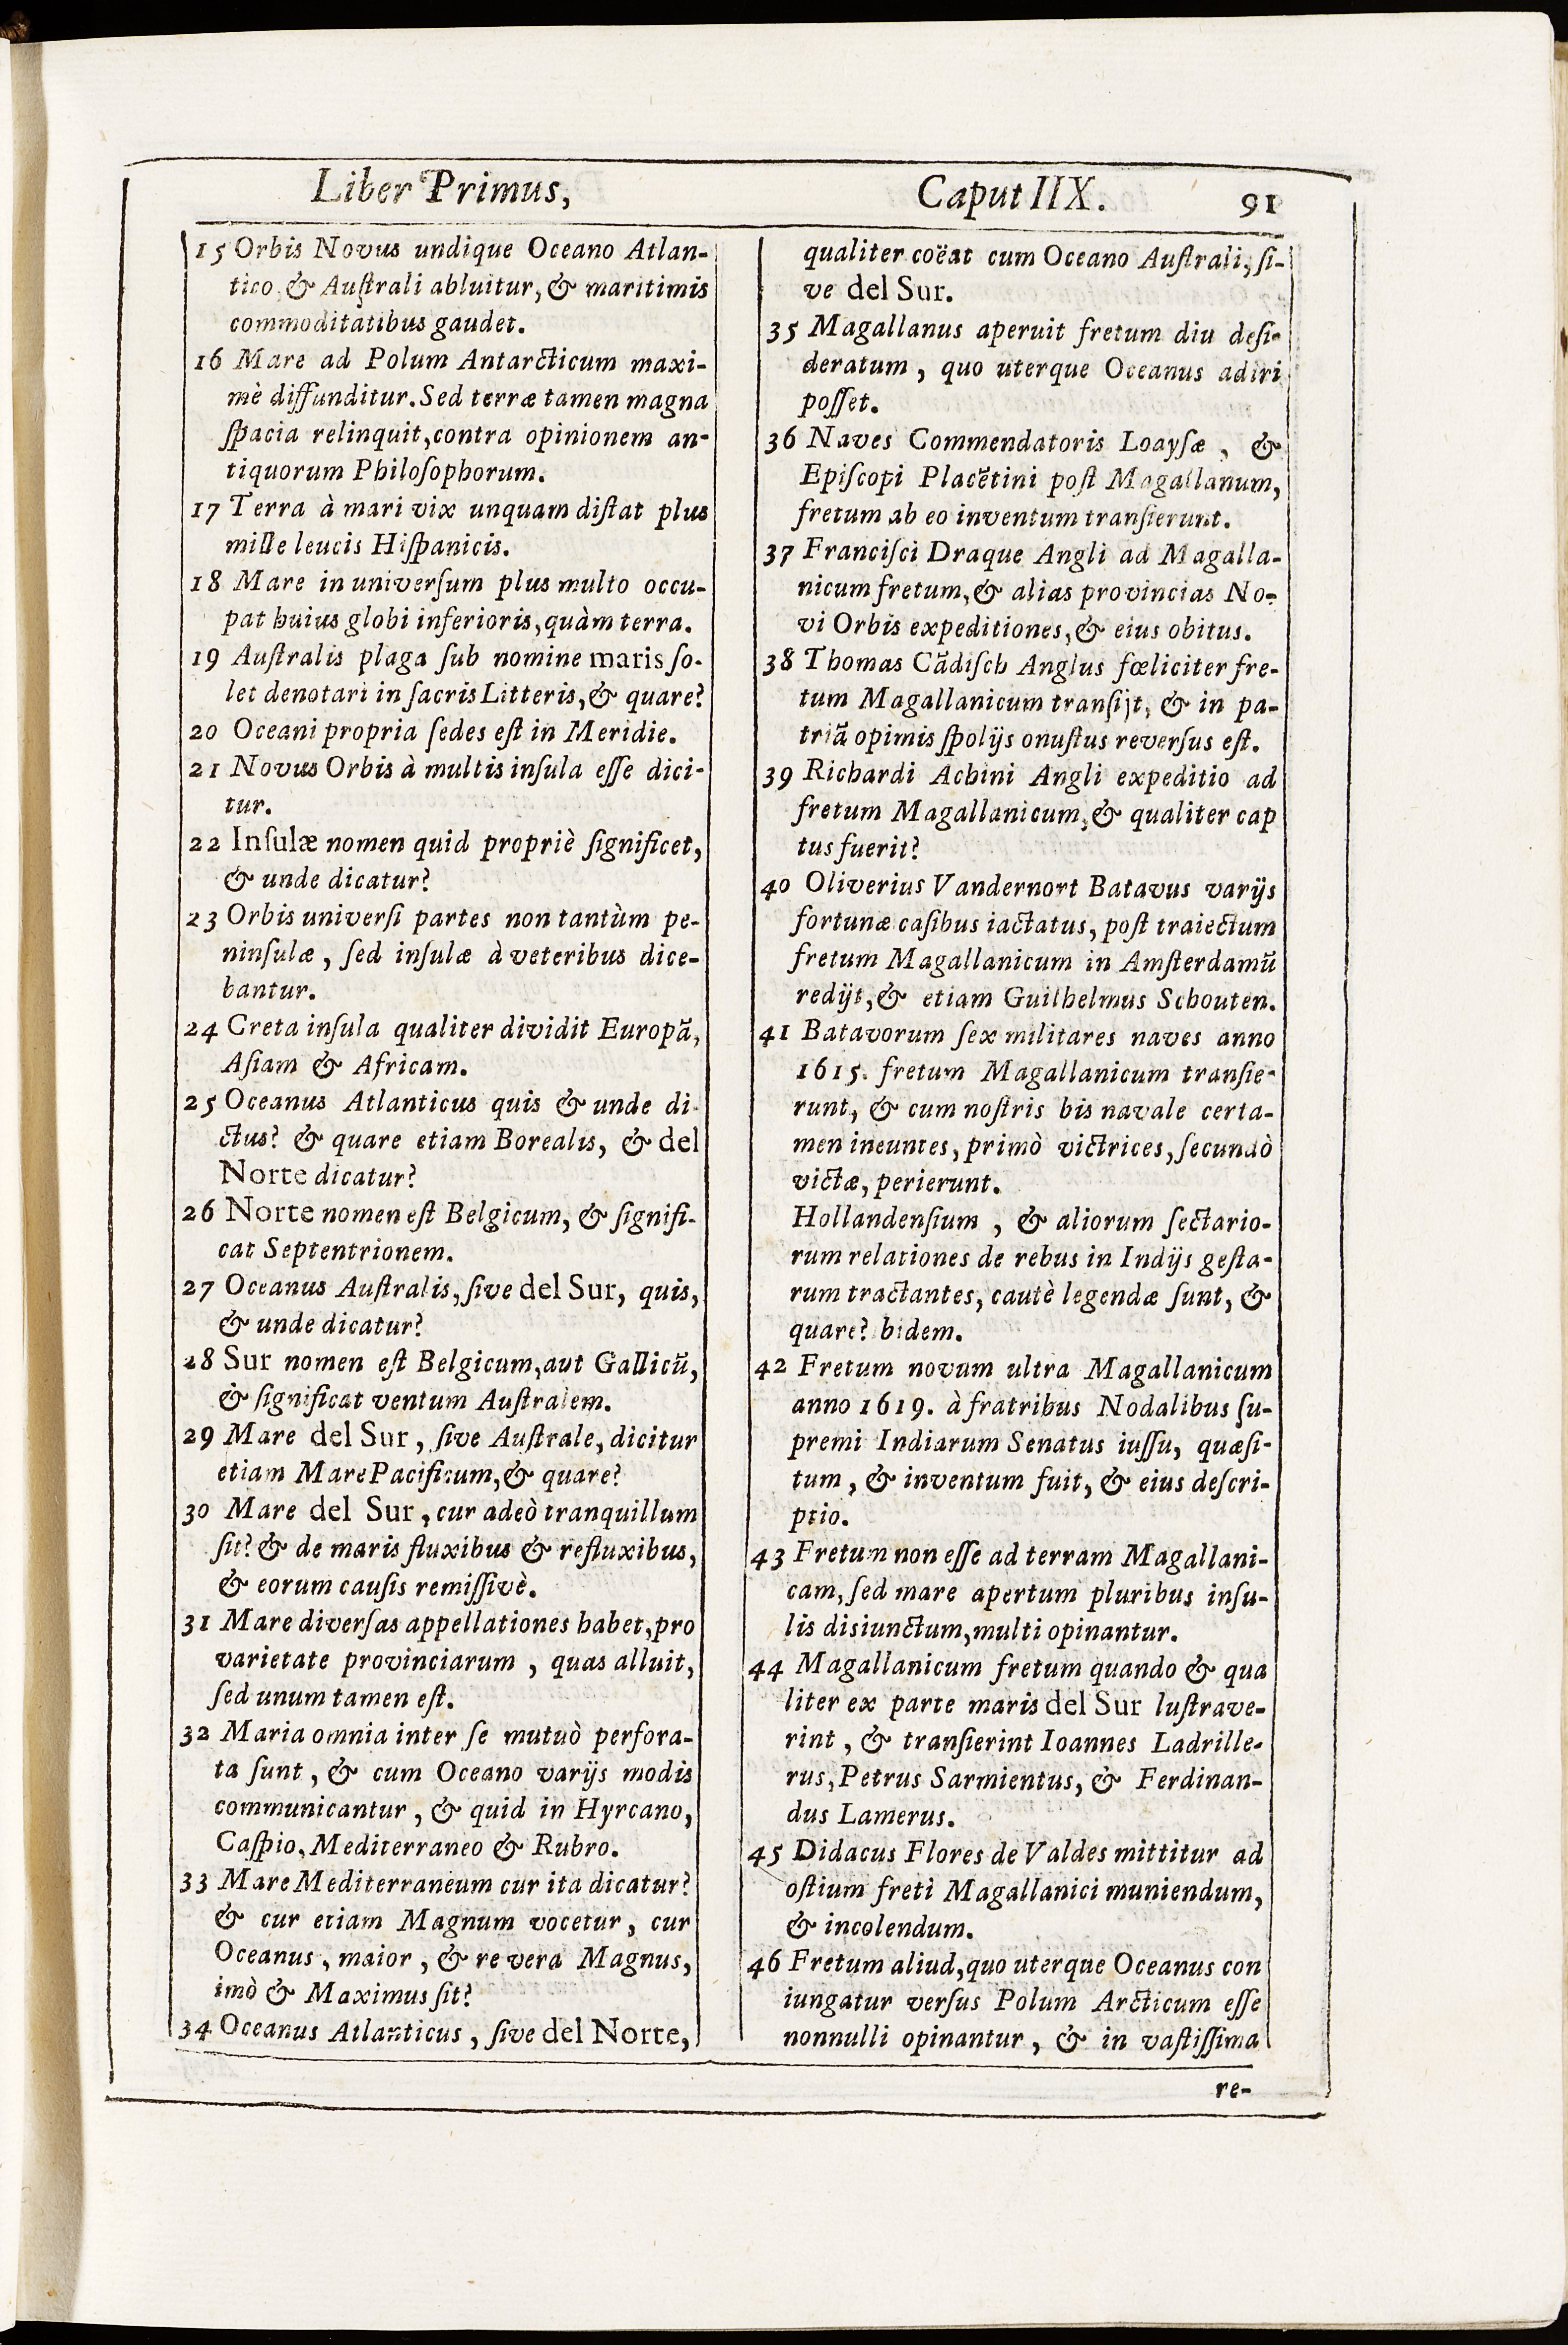 Liber Primus, Caput IIX. 91
15 Orbis Novus undique Oceano Atlan-
tico & Auſtrali abluitur, & maritimis
commoditatibus gaudet.
16 Mare ad Polum Antarcticum maxi-
mè diffunditur. Sed terræ tamen magna
ſpacia relinquit, contra opinionem an-
tiquorum Philoſophorum.
17 Terra à mari vix unquam diſtat plus
mille leucis Hiſpanicis.
18 Mare in univerſum plus multo occu-
pat huius globi inferioris, quàm terra.
19 Auſtralis plaga ſub nomine maris ſo-
let denotari in ſacris Litteris, & quare?
20 Oceani propria ſedes eſt in Meridie.
21 Novus Orbis à multis inſula eſſe dici-
tur.
22 Inſulæ nomen quid propriè ſignificet,
& unde dicatur?
23 Orbis univerſi partes non tantùm pe-
ninſulæ, ſed inſulæ à veteribus dice-
bantur.
24 Creta inſula qualiter dividit Europã,
Aſiam & Africam.
25 Oceanus Atlanticus quis & unde di-
ctus? & quare etiam Borealis, & del
Norte dicatur?
26 Norte nomen eſt Belgicum, & ſignifi-
cat Septentrionem.
27 Oceanus Auſtralis, ſive del Sur, quis,
& unde dicatur?
28 Sur nomen eſt Belgicum, aut Gallicũ,
& ſignificat ventum Auſtralem.
29 Mare del Sur, ſive Auſtrale, dicitur
etiam Mare Pacificum, & quare?
30 Mare del Sur, cur adeò tranquillum
ſit? & de maris fluxibus & refluxibus,
& eorum cauſis remiſſivè.
31 Mare diverſas appellationes habet, pro
varietate provinciarum, quas alluit,
ſed unum tamen eſt.
32 Maria omnia inter ſe mutuò perfora-
ta ſunt, & cum Oceano varijs modis
communicantur, & quid in Hyrcano,
Caſpio, Mediterraneo & Rubro.
33 Mare Mediterraneum cur ita dicatur?
& cur etiam Magnum vocetur, cur
Oceanus, maior, & re vera Magnus,
imò & Maximus ſit?
34 Oceanus Atlanticus, ſive del Norte,
qualiter coëat cum Oceano Auſtrali, ſi-
ve del Sur.
35 Magallanus aperuit fretum diu deſi-
deratum, quo uterque Oceanus adiri
poſſet.
36 Naves Commendatoris Loayſæ, &
Epiſcopi Placẽtini poſt Magallanum,
fretum ab eo inventum tranſierunt.
37 Franciſci Draque Angli ad Magalla-
nicum fretum, & alias provincias No-
vi Orbis expeditiones, & eius obitus.
38 Thomas Cãdiſch Anglus fœliciter fre-
tum Magallanicum tranſijt, & in pa-
triã opimis ſpolijs onuſtus reverſus eſt.
39 Richardi Achini Angli expeditio ad
fretum Magallanicum, & qualiter cap
tus fuerit?
40 Oliverius Vandernort Batavus varijs
fortunæ caſibus iactatus, poſt traiectum
fretum Magallanicum in Amſterdamũ
redijt, & etiam Guilhelmus Schouten.
41 Batavorum ſex militares naves anno
1615. fretum Magallanicum tranſie-
runt, & cum noſtris bis navale certa-
men ineuntes, primò victrices, ſecundò
victæ, perierunt.
Hollandenſium, & aliorum ſectario-
rum relationes de rebus in Indijs geſta-
rum tractantes, cautè legendæ ſunt, &
quare? bidem.
42 Fretum novum ultra Magallanicum
anno 1619. à fratribus Nodalibus ſu-
premi Indiarum Senatus iuſſu, quæſi-
tum, & inventum fuit, & eius deſcri-
ptio.
43 Fretum non eſſe ad terram Magallani-
cam, ſed mare apertum pluribus inſu-
lis disiunctum, multi opinantur.
44 Magallanicum fretum quando & qua
liter ex parte maris del Sur luſtrave-
rint, & tranſierint Ioannes Ladrille-
rus, Petrus Sarmientus, & Ferdinan-
dus Lamerus.
45 Didacus Flores de Valdes mittitur ad
oſtium freti Magallanici muniendum,
& incolendum.
46 Fretum aliud, quo uterque Oceanus con
iungatur verſus Polum Arcticum eſſe
nonnulli opinantur, & in vaſtiſſima
re-